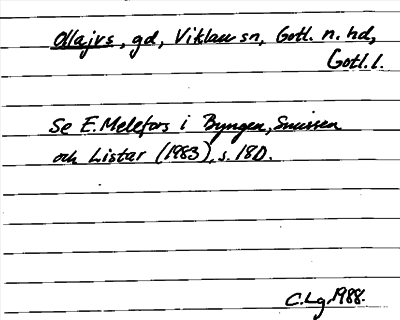 Ollajvs, gd, Viklau sn, Gotl. n. hd,
Gotl. l.
Se E. Melefors i Byngen, Snussen
och Listar (1983), s. 180.
C. Lg. 1988.